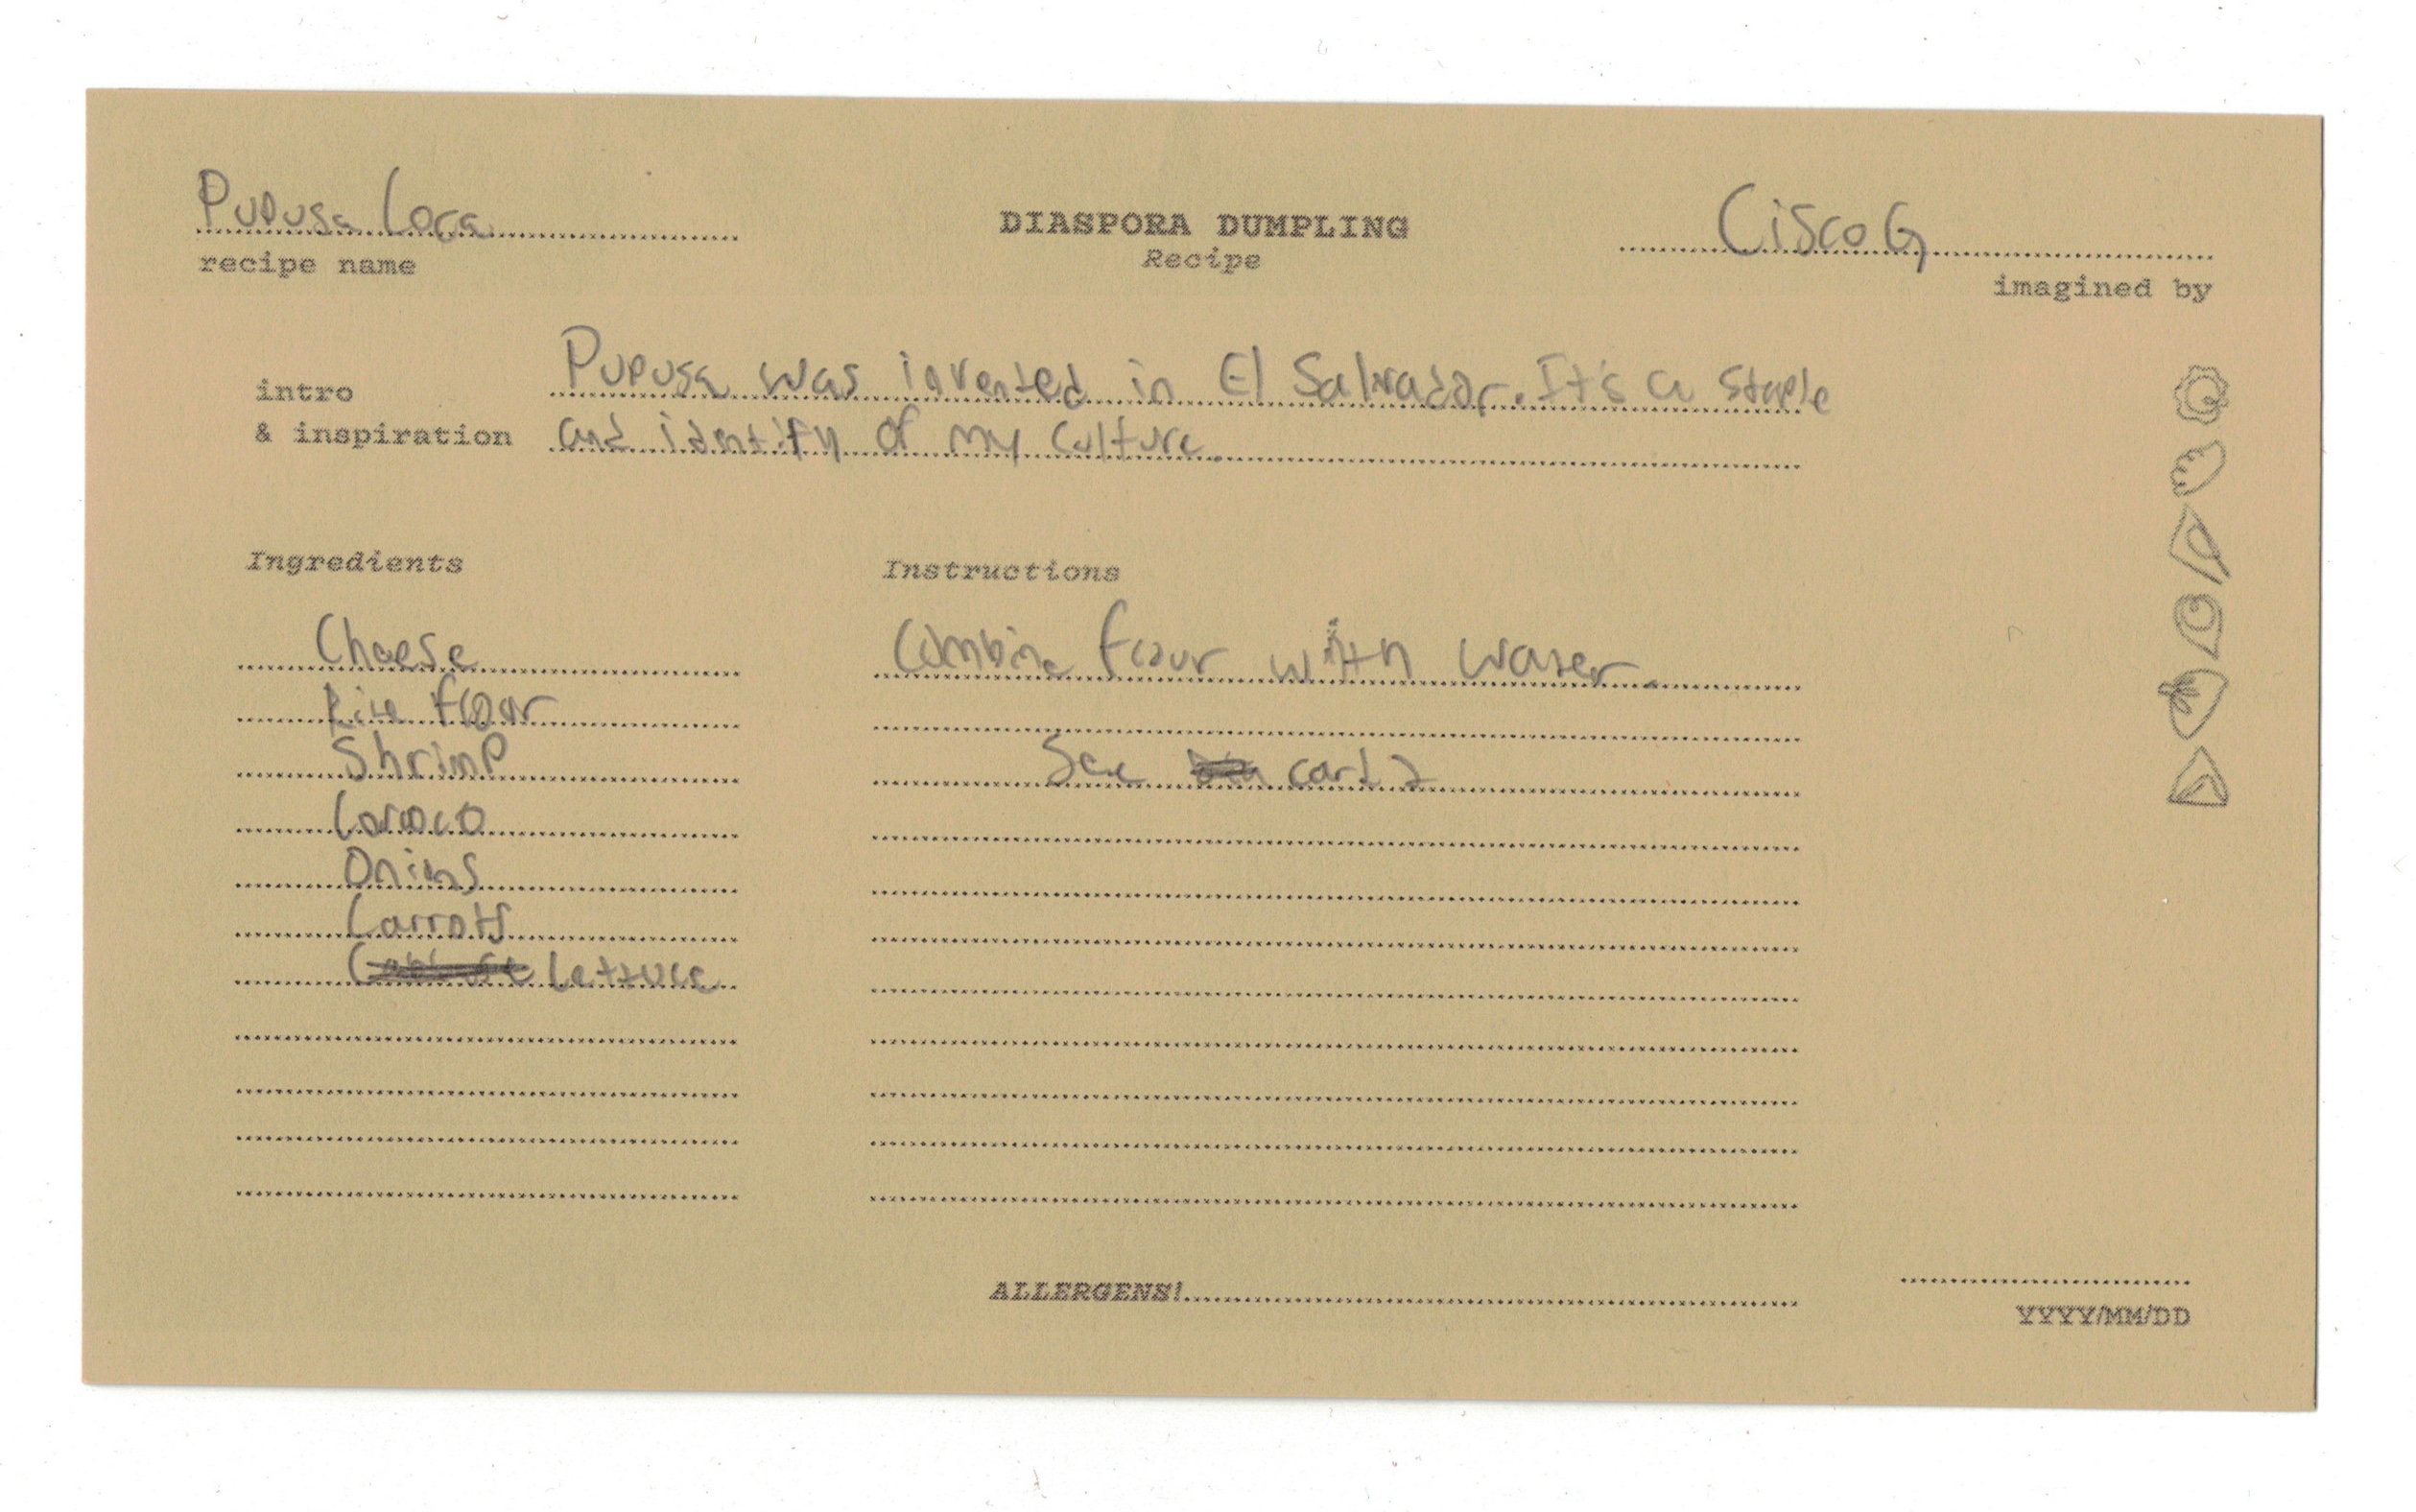 Pupusa Loca
recipe name
DIASPORA DUMPLING
Recipe
Cisco G
imagined by
intro
& inspiration
Pupusa was invented in El Salvador. It's a staple
and identity of my culture.
Ingredients
Cheese
Rice flour
Shrimp
Loroco
Onions
Carrots
Lettuce
Instructions
Combine flour with water.
See card 2
ALLERGENS!
YYYY/MM/DD